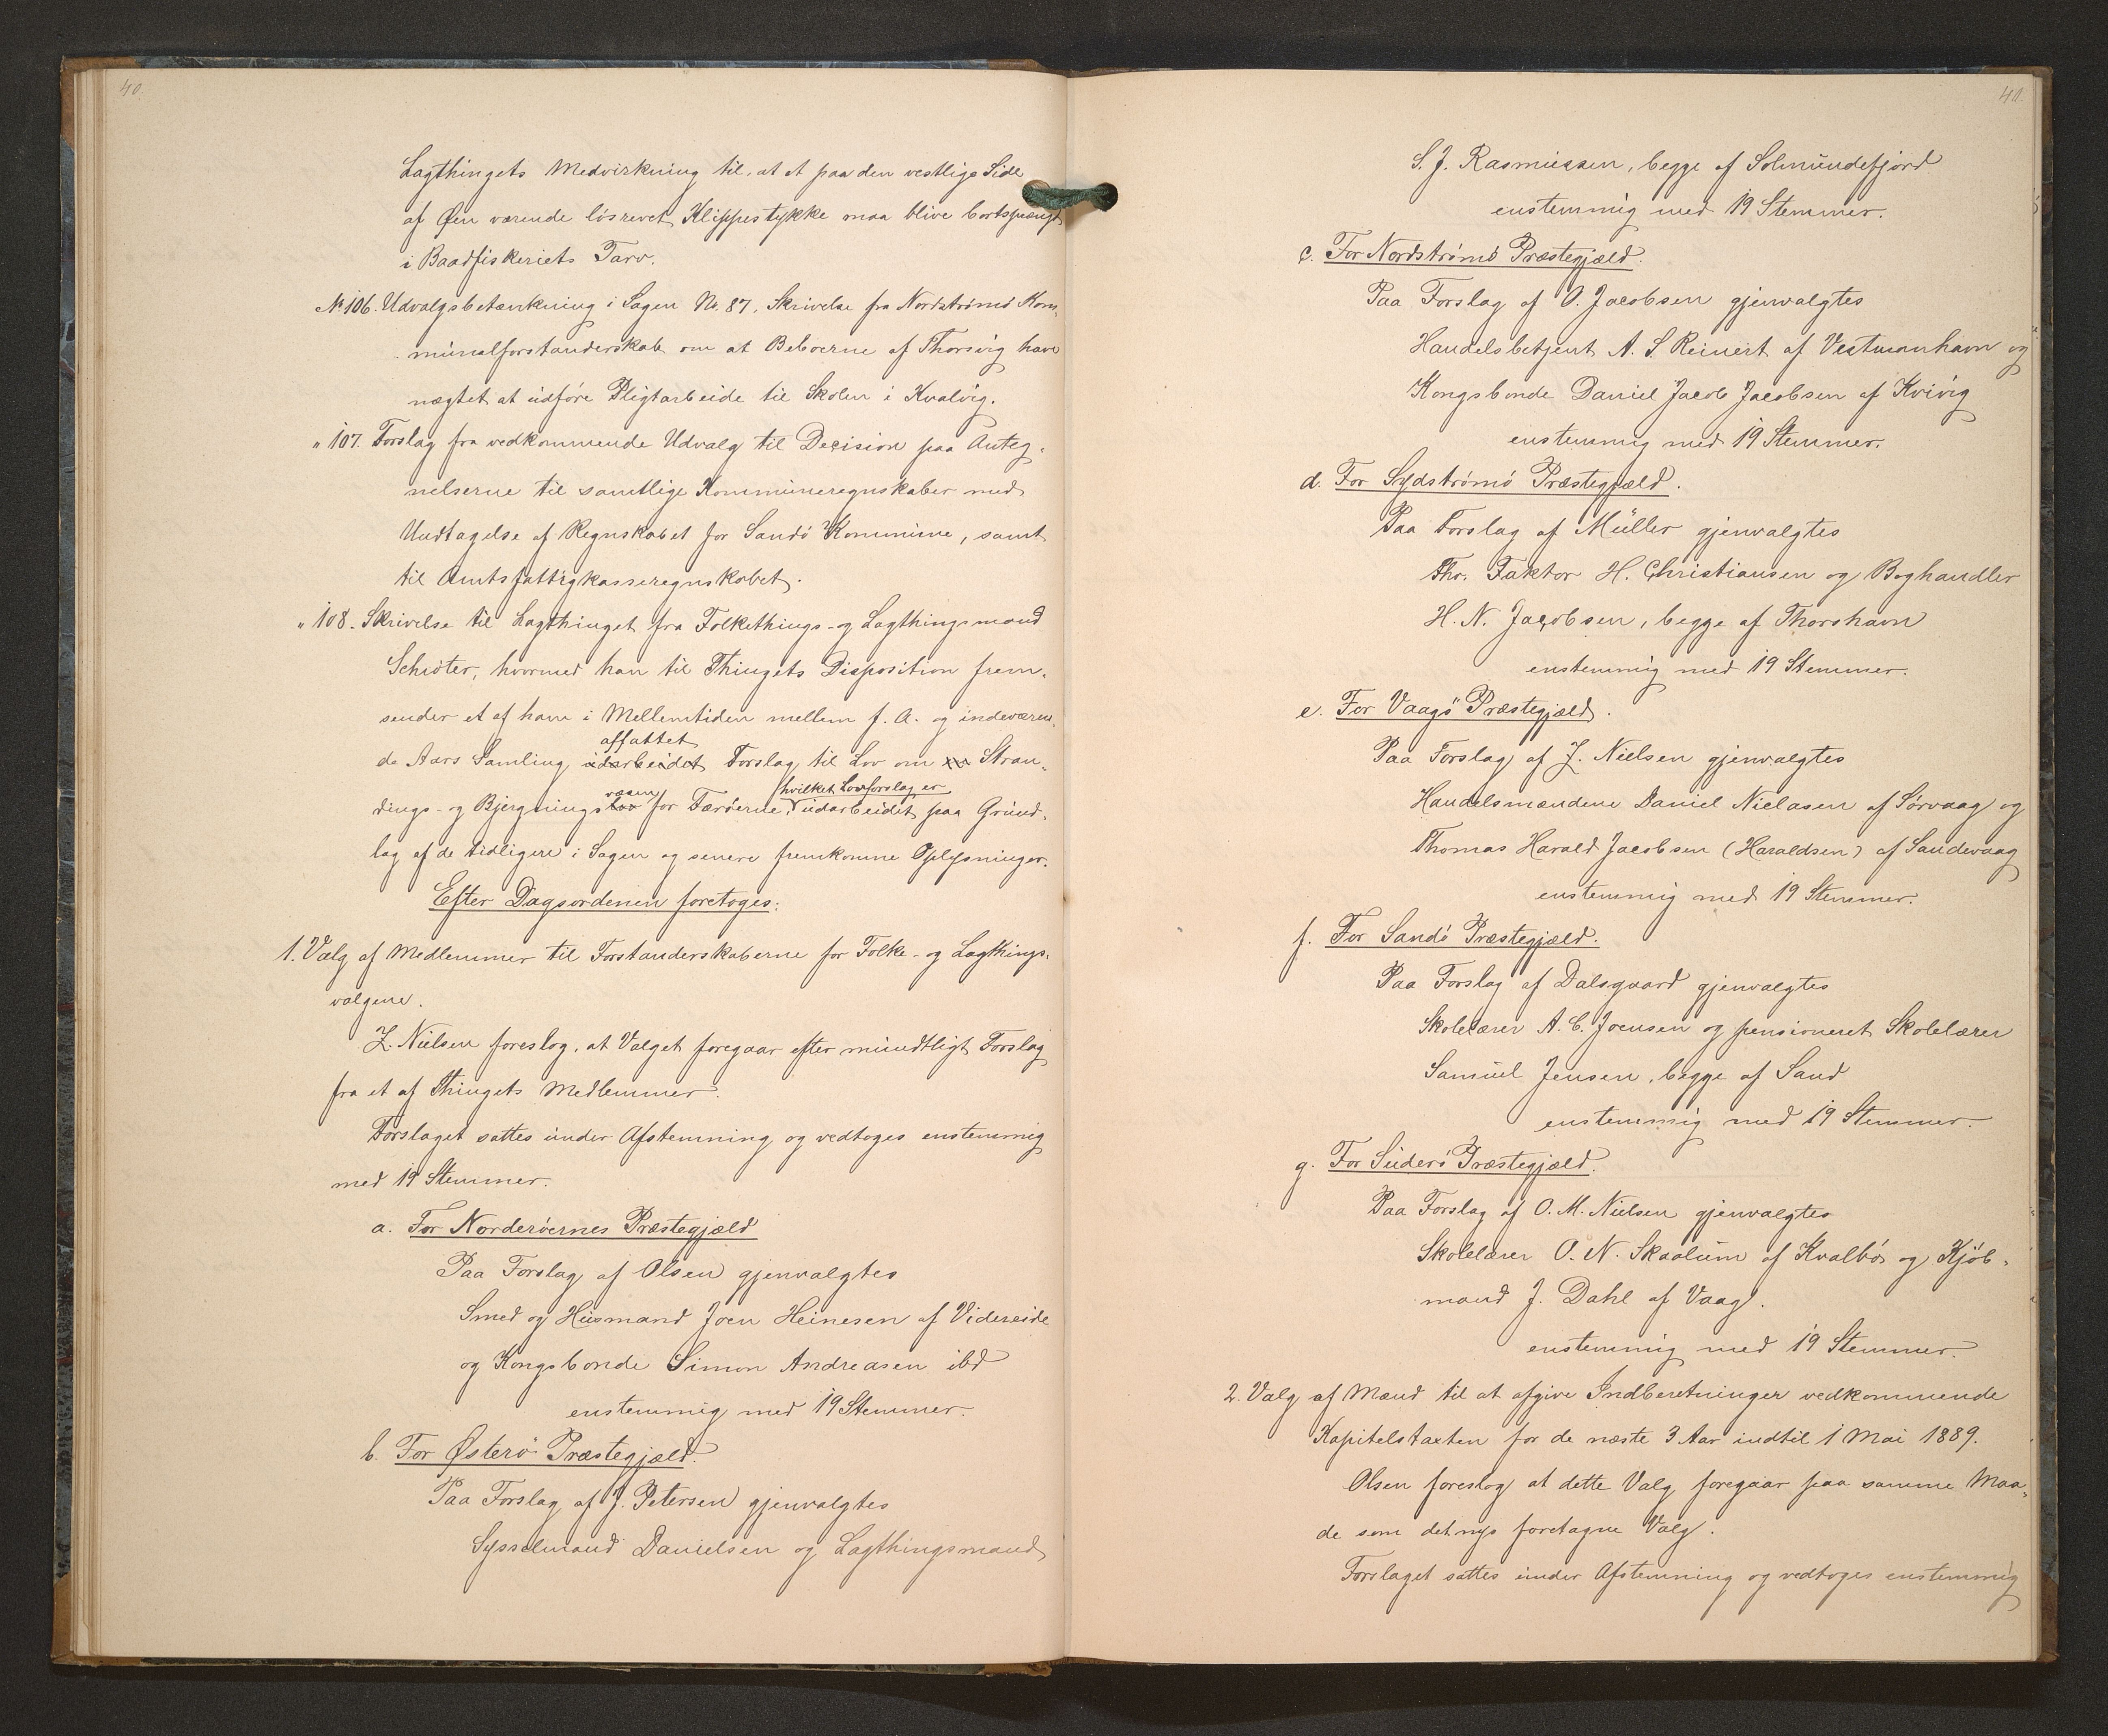 40.
Lagthingets Medvirkning til, at et paa den vestlige Side
af Øen værende løsrevet Klippestykke maa blive bortsprængt
i Baadfiskeriets Tarv.
№ 106. Udvalgsbetænkning i Sagen Nr. 87, Skrivelse fra Nordstrømø Kom-
munalforstanderskab om at Beboerne af Thorsvig have
nægtet at udføre Pligtarbeide til Skolen i Kvalvig.
" 107. Forslag fra vedkommende Udvalg til Decision paa Anteg-
nelserne til samtlige Kommuneregnskaber med
Undtagelse af Regnskabet for Sandø Kommune, samt
til Amtsfattigkasseregnskabet.
" 108. Skrivelse til Lagthinget fra Folkethings- og Lagthingsmand
Schrøter, hvormed han til Thingets Disposition frem-
sender et af ham i Mellemtiden mellem f. A. og indeværen-
affattet
de Aars Samling udarbeidet Forslag til Lov om en Stran-
væsen hvilket Lovforslag er
dings- og Bjergningslov for Færøerne, udarbeidet paa Grund-
lag af de tidligere i Sagen og senere fremkomne Oplysninger.
Efter Dagsordenen foretoges:
1. Valg af Medlemmer til Forstanderskaberne for Folke- og Lagthings-
valgene.
Z. Nielsen foreslog, at Valget foregaar efter mundtligt Forslag
fra et af Thingets Medlemmer.
Forslaget sattes under Afstemning og vedtoges enstemmig
med 19 Stemmer.
a. For Norderøernes Præstegjæld
Paa Forslag af Olsen gjenvalgtes
Smed og Husmand Joen Heinesen af Videreide
og Kongsbonde Simon Andreasen ibd
enstemmig med 19 Stemmer.
b. For Østerø Præstegjæld.
Paa Forslag af J. Petersen gjenvalgtes
Sysselmand Danielsen og Lagthingsmand
41.
S. J. Rasmussen, begge af Solmundefjord
enstemmig med 19 Stemmer.
c. For Nordstrømø Præstegjæld.
Paa Forslag af O. Jacobsen gjenvalgtes
Handelsbetjent A. S. Reinert af Vestmanhavn og
Kongsbonde Daniel Jacob Jacobsen af Kvivig
enstemmig med 19 Stemmer.
d. For Sydstrømø Præstegjæld.
Paa Forslag af Müller gjenvalgtes
Fhv. Faktor H. Christiansen og Boghandler
H. N. Jacobsen, begge af Thorshavn
enstemmig med 19 Stemmer.
e. For Vaagø Præstegjæld.
Paa Forslag af Z. Nielsen gjenvalgtes
Handelsmændene Daniel Nielasen af Sørvaag og
Thomas Harald Jacobsen (Haraldsen) af Sandevaag
enstemmig med 19 Stemmer.
f. For Sandø Præstegjæld.
Paa Forslag af Dalsgaard gjenvalgtes
Skolelærer A. C. Joensen og pensioneret Skolelærer
Samuel Jensen, begge af Sand
enstemmig med 19 Stemmer.
g. For Suderø Præstegjæld.
Paa Forslag af O. M. Nielsen gjenvalgtes
Skolelærer O. N. Skaalum af Kvalbø og Kjøb-
mand J. Dahl af Vaag.
enstemmig med 19 Stemmer.
2. Valg af Mænd til at afgive Indberetninger vedkommende
Kapitelstaxten for de næste 3 Aar indtil 1 Mai 1889.
Olsen foreslog at dette Valg foregaar paa samme Maa-
de som det nys foretagne Valg.
Forslaget sattes under Afstemning og vedtoges enstemmig